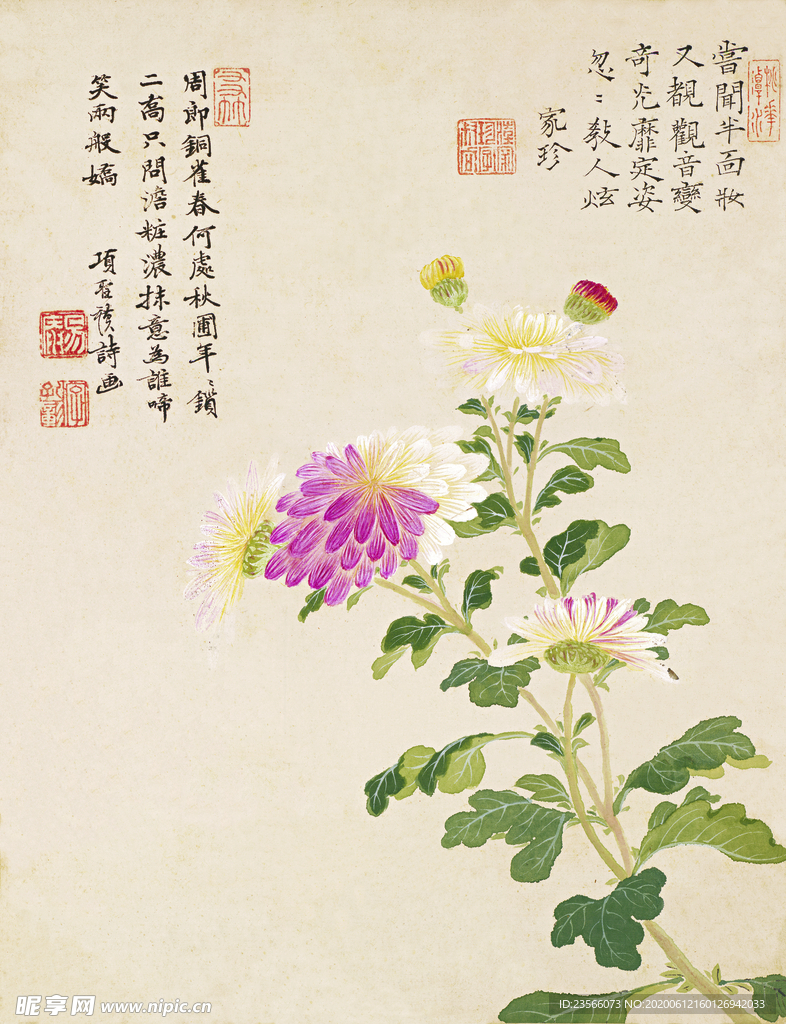 嘗聞半面妝
又覩觀音變
奇光靡定姿
忽〻教人炫
家珍
周郎銅雀春何處秋圃年〻鎖
二喬只問澹粧濃抹意為誰啼
笑兩般嬌
項聖謨詩画
昵享网 www.nipic.cn
ID:23566073 NO:20200612160126942033